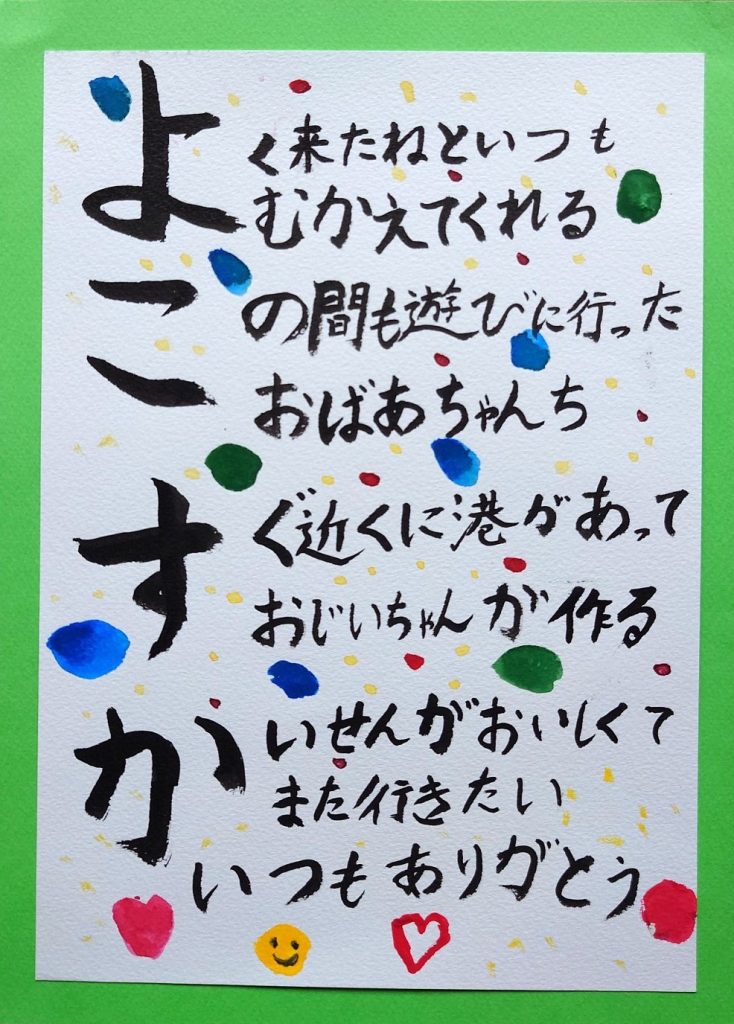 よく来たねといつも
むかえてくれる
この間も遊びに行った
おばあちゃんち
すぐ近くに港があって
おじいちゃんが作る
かいせんがおいしくて
また行きたい
いつもありがとう